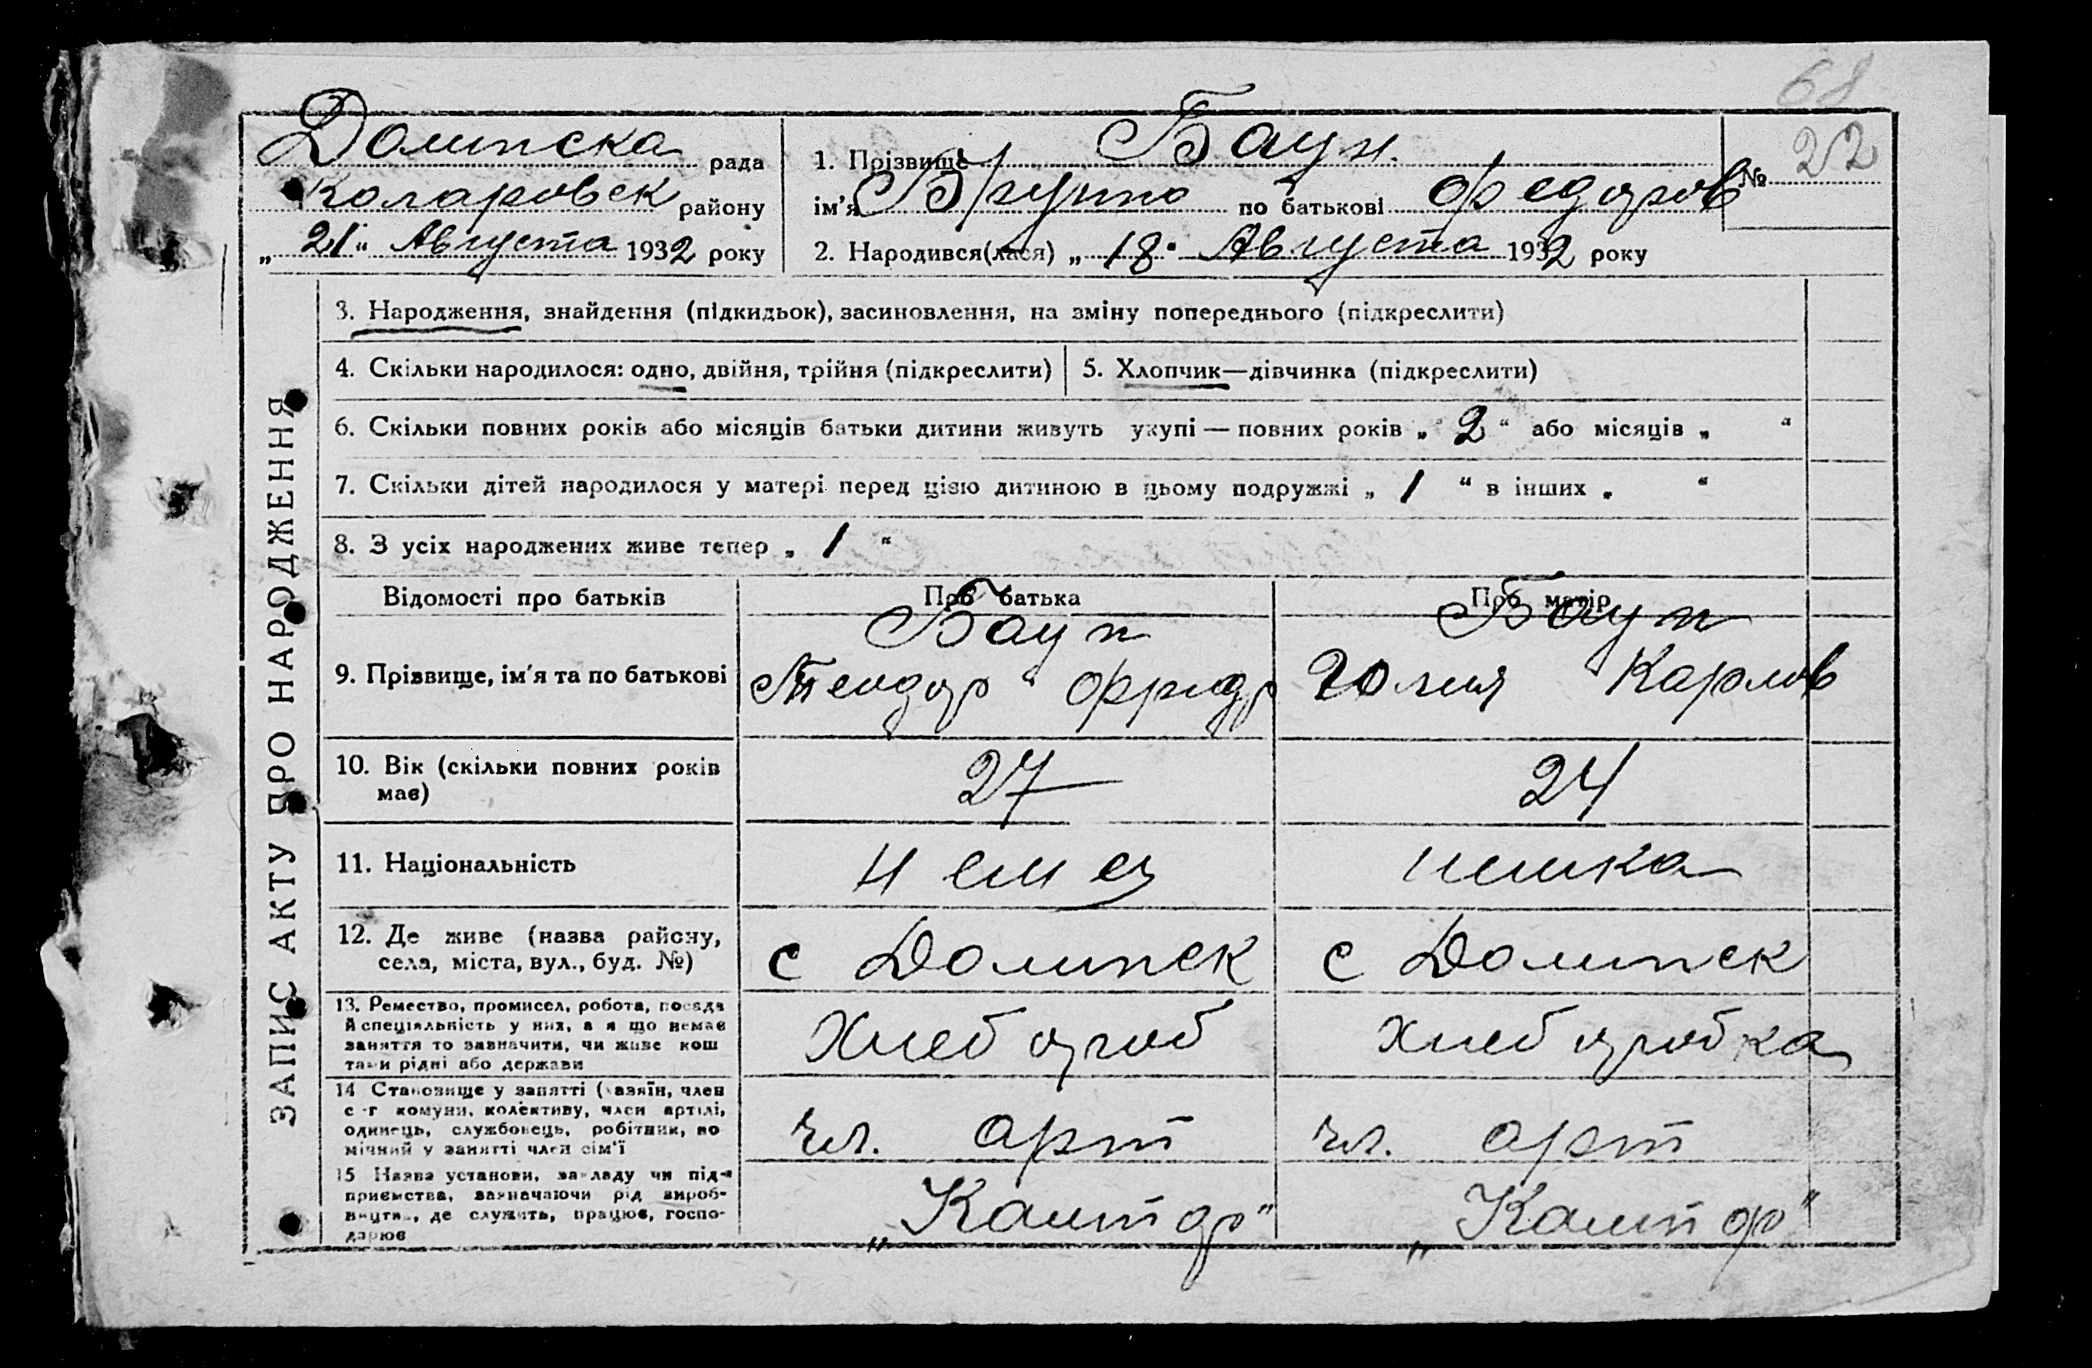 68
Долинска рада
Коларовск району
„21“ Августа 1932 року
1. Прізвище Баун.
ім'я Бруно по батькові Федоров
2. Народився(лася) „18“ Августа 1932 року
№ 22
ЗАПИС АКТУ ПРО НАРОДЖЕННЯ
3. Народження, знайдення (підкидьок), засиновлення, на зміну попереднього (підкреслити)
4. Скільки народилося: одно, двійня, трійня (підкреслити)
5. Хлопчик—дівчинка (підкреслити)
6. Скільки повних років або місяців батьки дитини живуть укупі — повних років „2“ або місяців „ “
7. Скільки дітей народилося у матері перед цією дитиною в цьому подружжі „1“ в інших „ “
8. З усіх народжених живе тепер „1“
Відомості про батьків
Про батька
Про матір
9. Прізвище, ім'я та по батькові
Баун
Теодор Фридр
Баун
Юлия Карлов
10. Вік (скільки повних років
має)
27
24
11. Національність
немец
немка
12. Де живе (назва району,
села, міста, вул., буд. №)
с Долинск
с Долинск
13. Ремество, промисел, робота, посада
й спеціяльність у них, а я що немає
заняття то зазначити, чи живе кош
тами рідні або держави
Хлебороб
хлеборобка
14 Становище у занятті (хазяїн, член
с-г комуни, колективу, член артілі,
одинець, службовець, робітник, по
мічний у занятті член сім'ї
чл. арт
чл. арт
15 Назва установи, закладу чи під-
приємства, зазначаючи рід вироб-
ництва, де служить, працює, госпо-
дарює